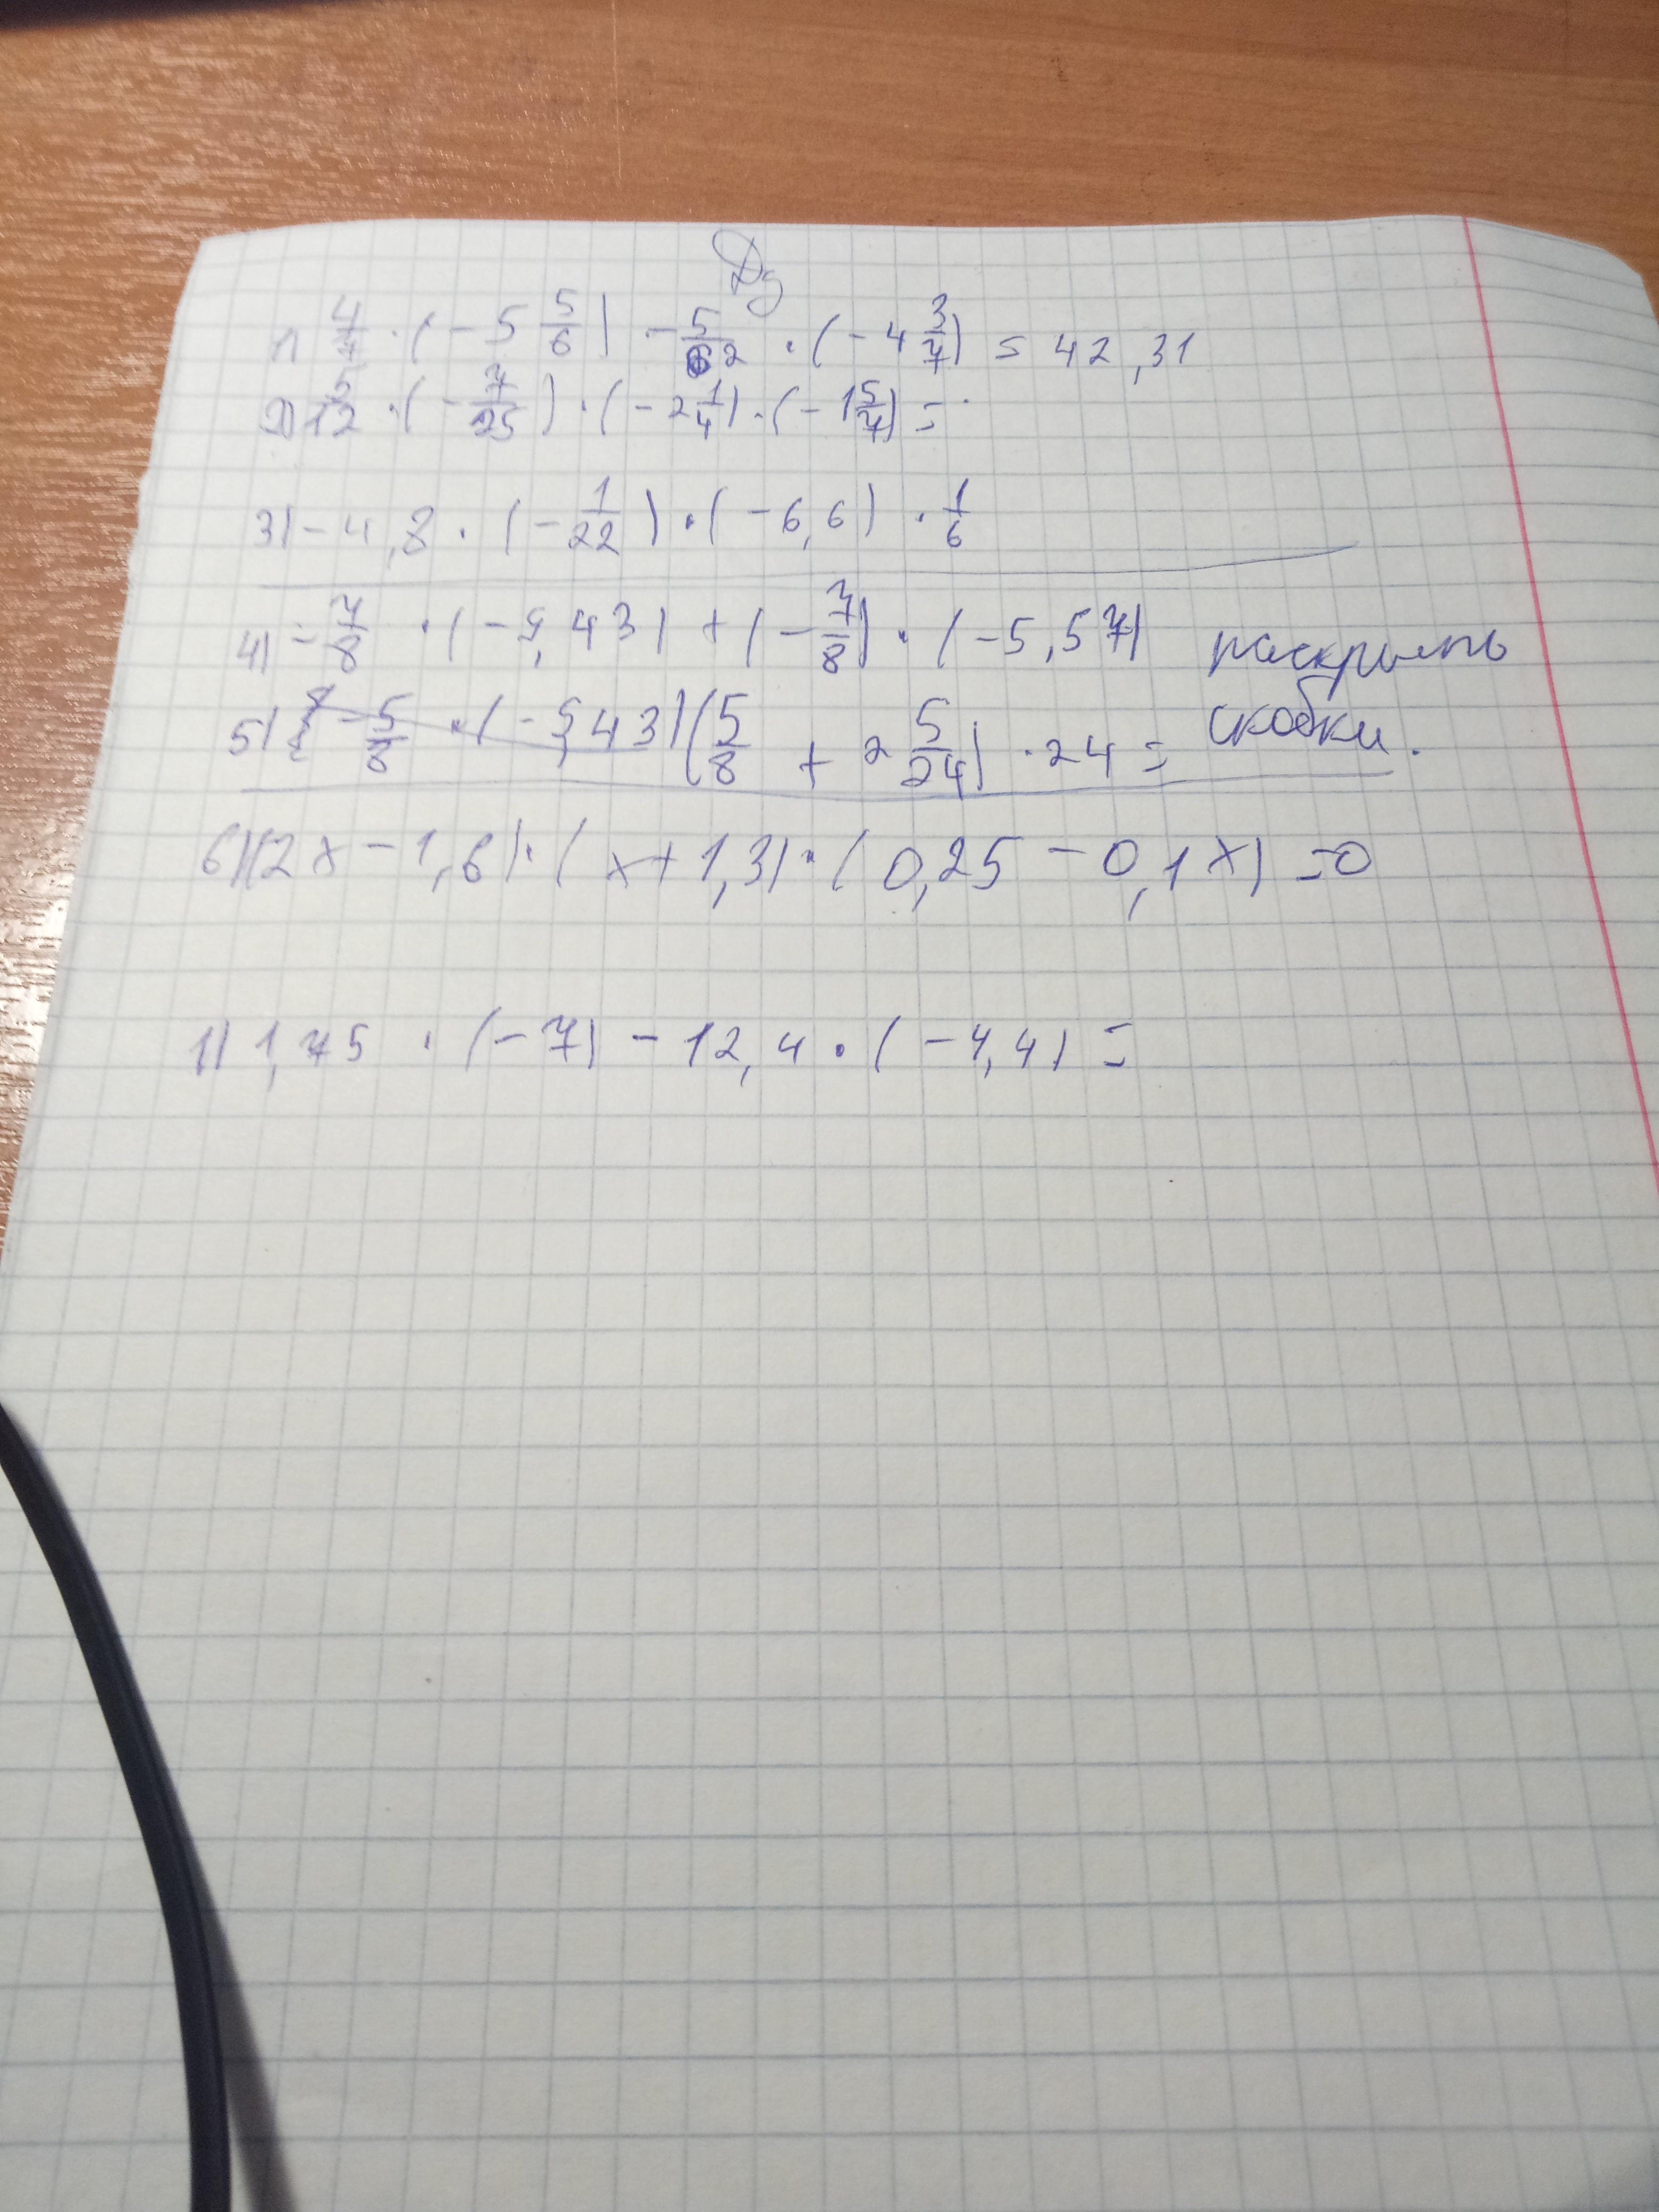 Дз
1) 4/7 · (-5 5/6) - 5/62 · (-4 3/7) = 42,31
2) 5/12 · (-7/25) · (-2 1/4) · (-1 5/7) =
3) -4,8 · (-1/22) · (-6,6) · 1/6
4) -7/8 · (-5,43) + (-7/8) · (-5,57) раскрыть
5) -5/8 · (-5,43) (5/8 + 2 5/24) · 24 = скобки.
6) (2x - 1,6) · (x + 1,3) · (0,25 - 0,1x) = 0
1) 1,75 · (-7) - 12,4 · (-4,4) =